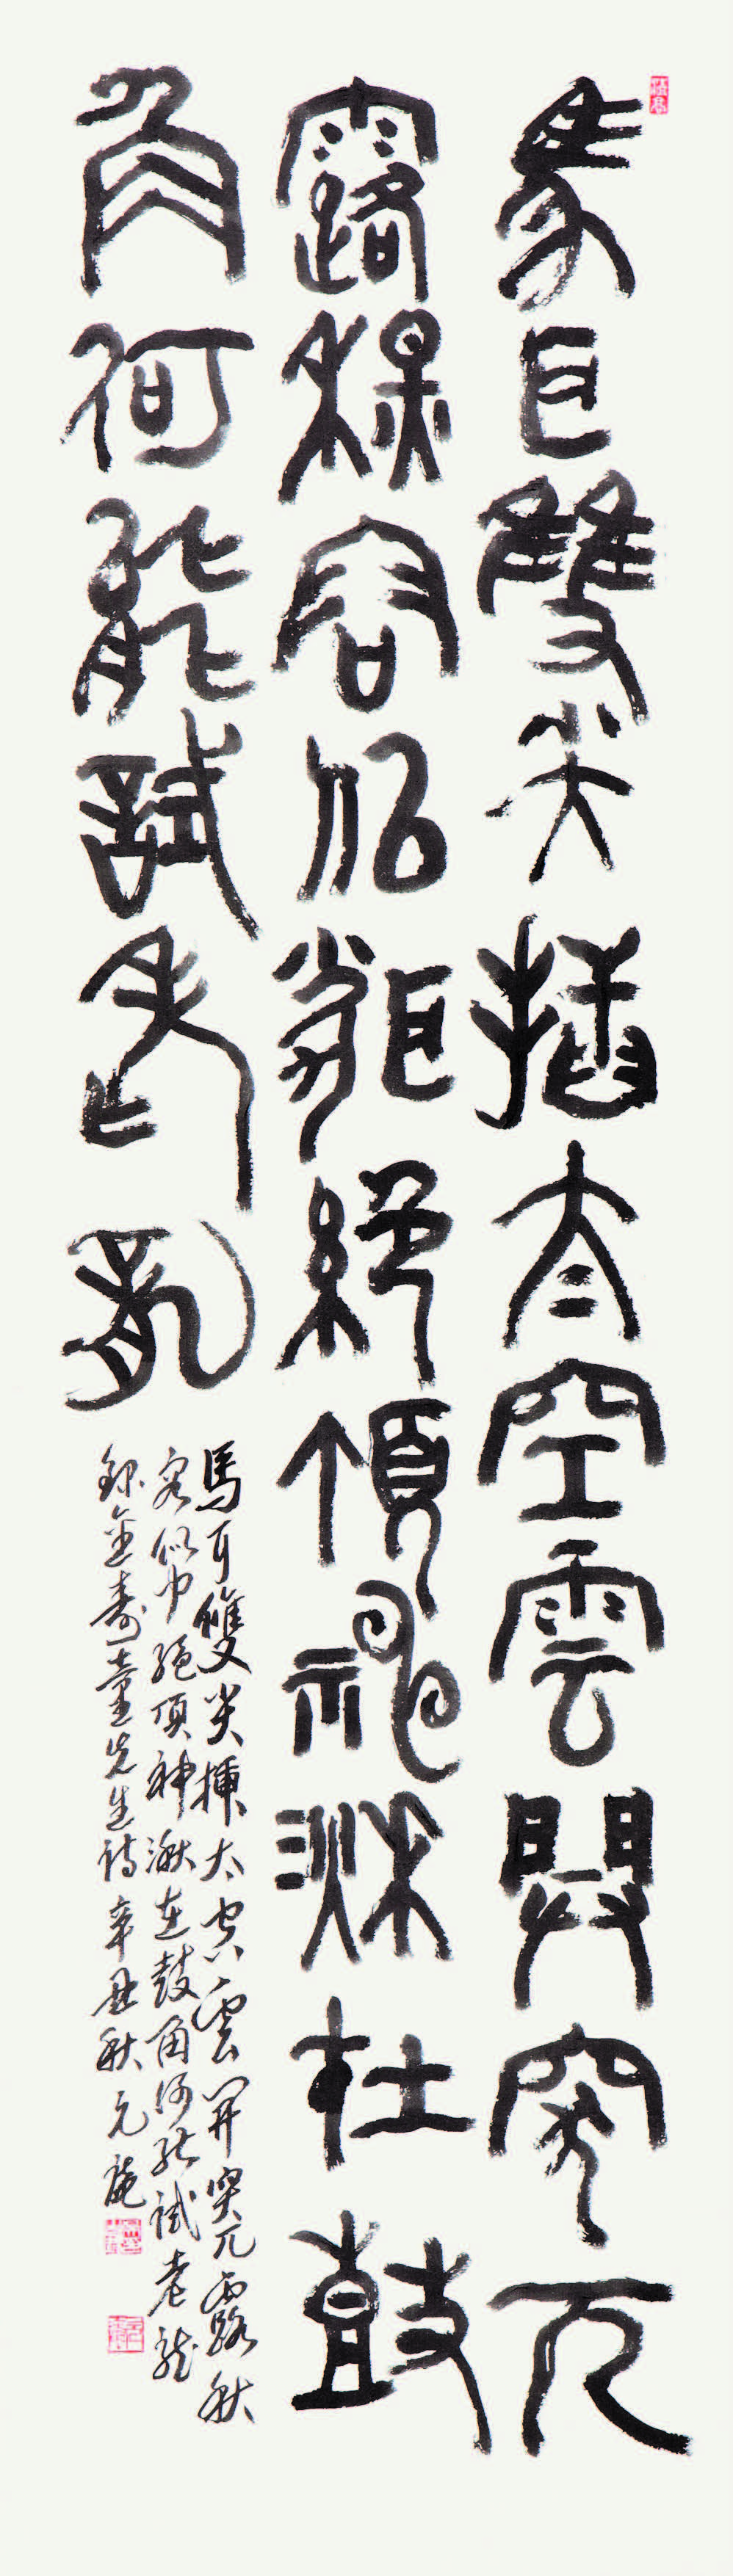 馬耳雙尖揷太空雲開突兀
露秋容似聞絶頂神湫在鼓
角何能試老龍
馬耳雙尖揷太空雲開突兀露秋
容似聞絶頂神湫在鼓角何能試老龍
錄金壽童先生詩辛丑秋元庵